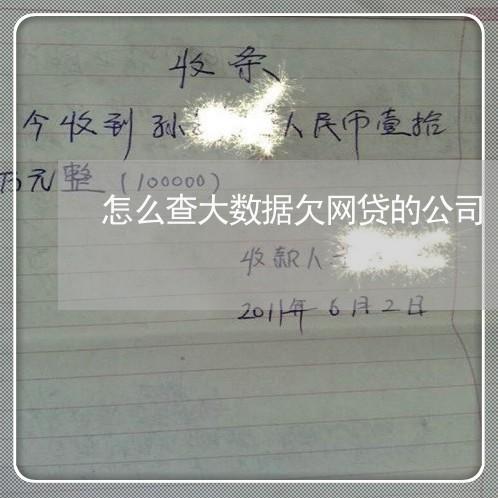 收条
今收到孙 人民币壹拾
万元整(100000)
怎么查大数据欠网贷的公司
收款人
2011年6月2日